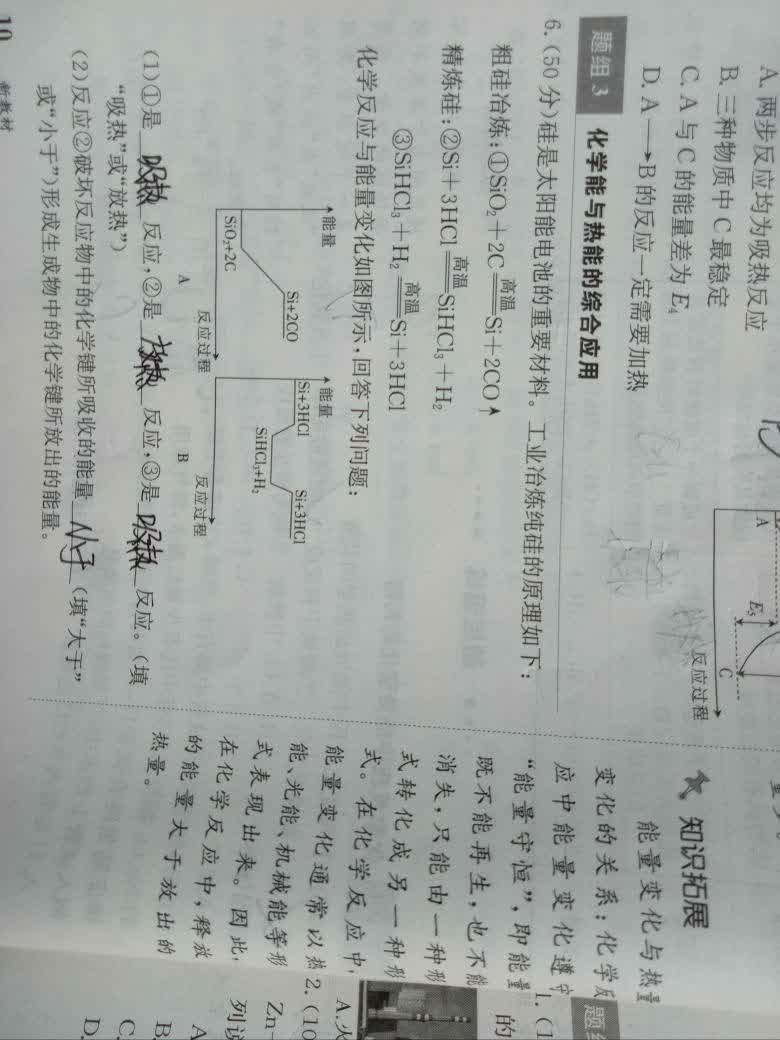 A. 两步反应均为吸热反应
B. 三种物质中 C 最稳定
C. A 与 C 的能量差为 E₄
D. A⟶B 的反应一定需要加热
A
E₅
C
反应过程
题组 3 化学能与热能的综合应用
6. (50 分)硅是太阳能电池的重要材料。工业冶炼纯硅的原理如下:
粗硅冶炼:①SiO₂+2C 高温 Si+2CO↑
精炼硅:②Si+3HCl 高温 SiHCl₃+H₂
③SiHCl₃+H₂ 高温 Si+3HCl
化学反应与能量变化如图所示,回答下列问题:
能量
Si+2CO
SiO₂+2C
反应过程
A
能量
Si+3HCl
Si+3HCl
SiHCl₃+H₂
反应过程
B
(1)①是 吸热 反应,②是 放热 反应,③是 吸热 反应。(填
“吸热”或“放热”)
(2)反应②破坏反应物中的化学键所吸收的能量 小于 (填“大于”
或“小于”)形成生成物中的化学键所放出的能量。
10 新教材
知识拓展
能量变化与热量
变化的关系:化学反
应中能量变化遵守
“能量守恒”,即能量
既不能再生,也不能
消失,只能由一种形
式转化成另一种形
式。在化学反应中,
能量变化通常以热
能、光能、机械能等形
式表现出来。因此,
在化学反应中,释放
的能量大于放出的
热量。
题组
1. (1
的
A. 火
2. (10
Zn
列说
A
B.
C.
D.